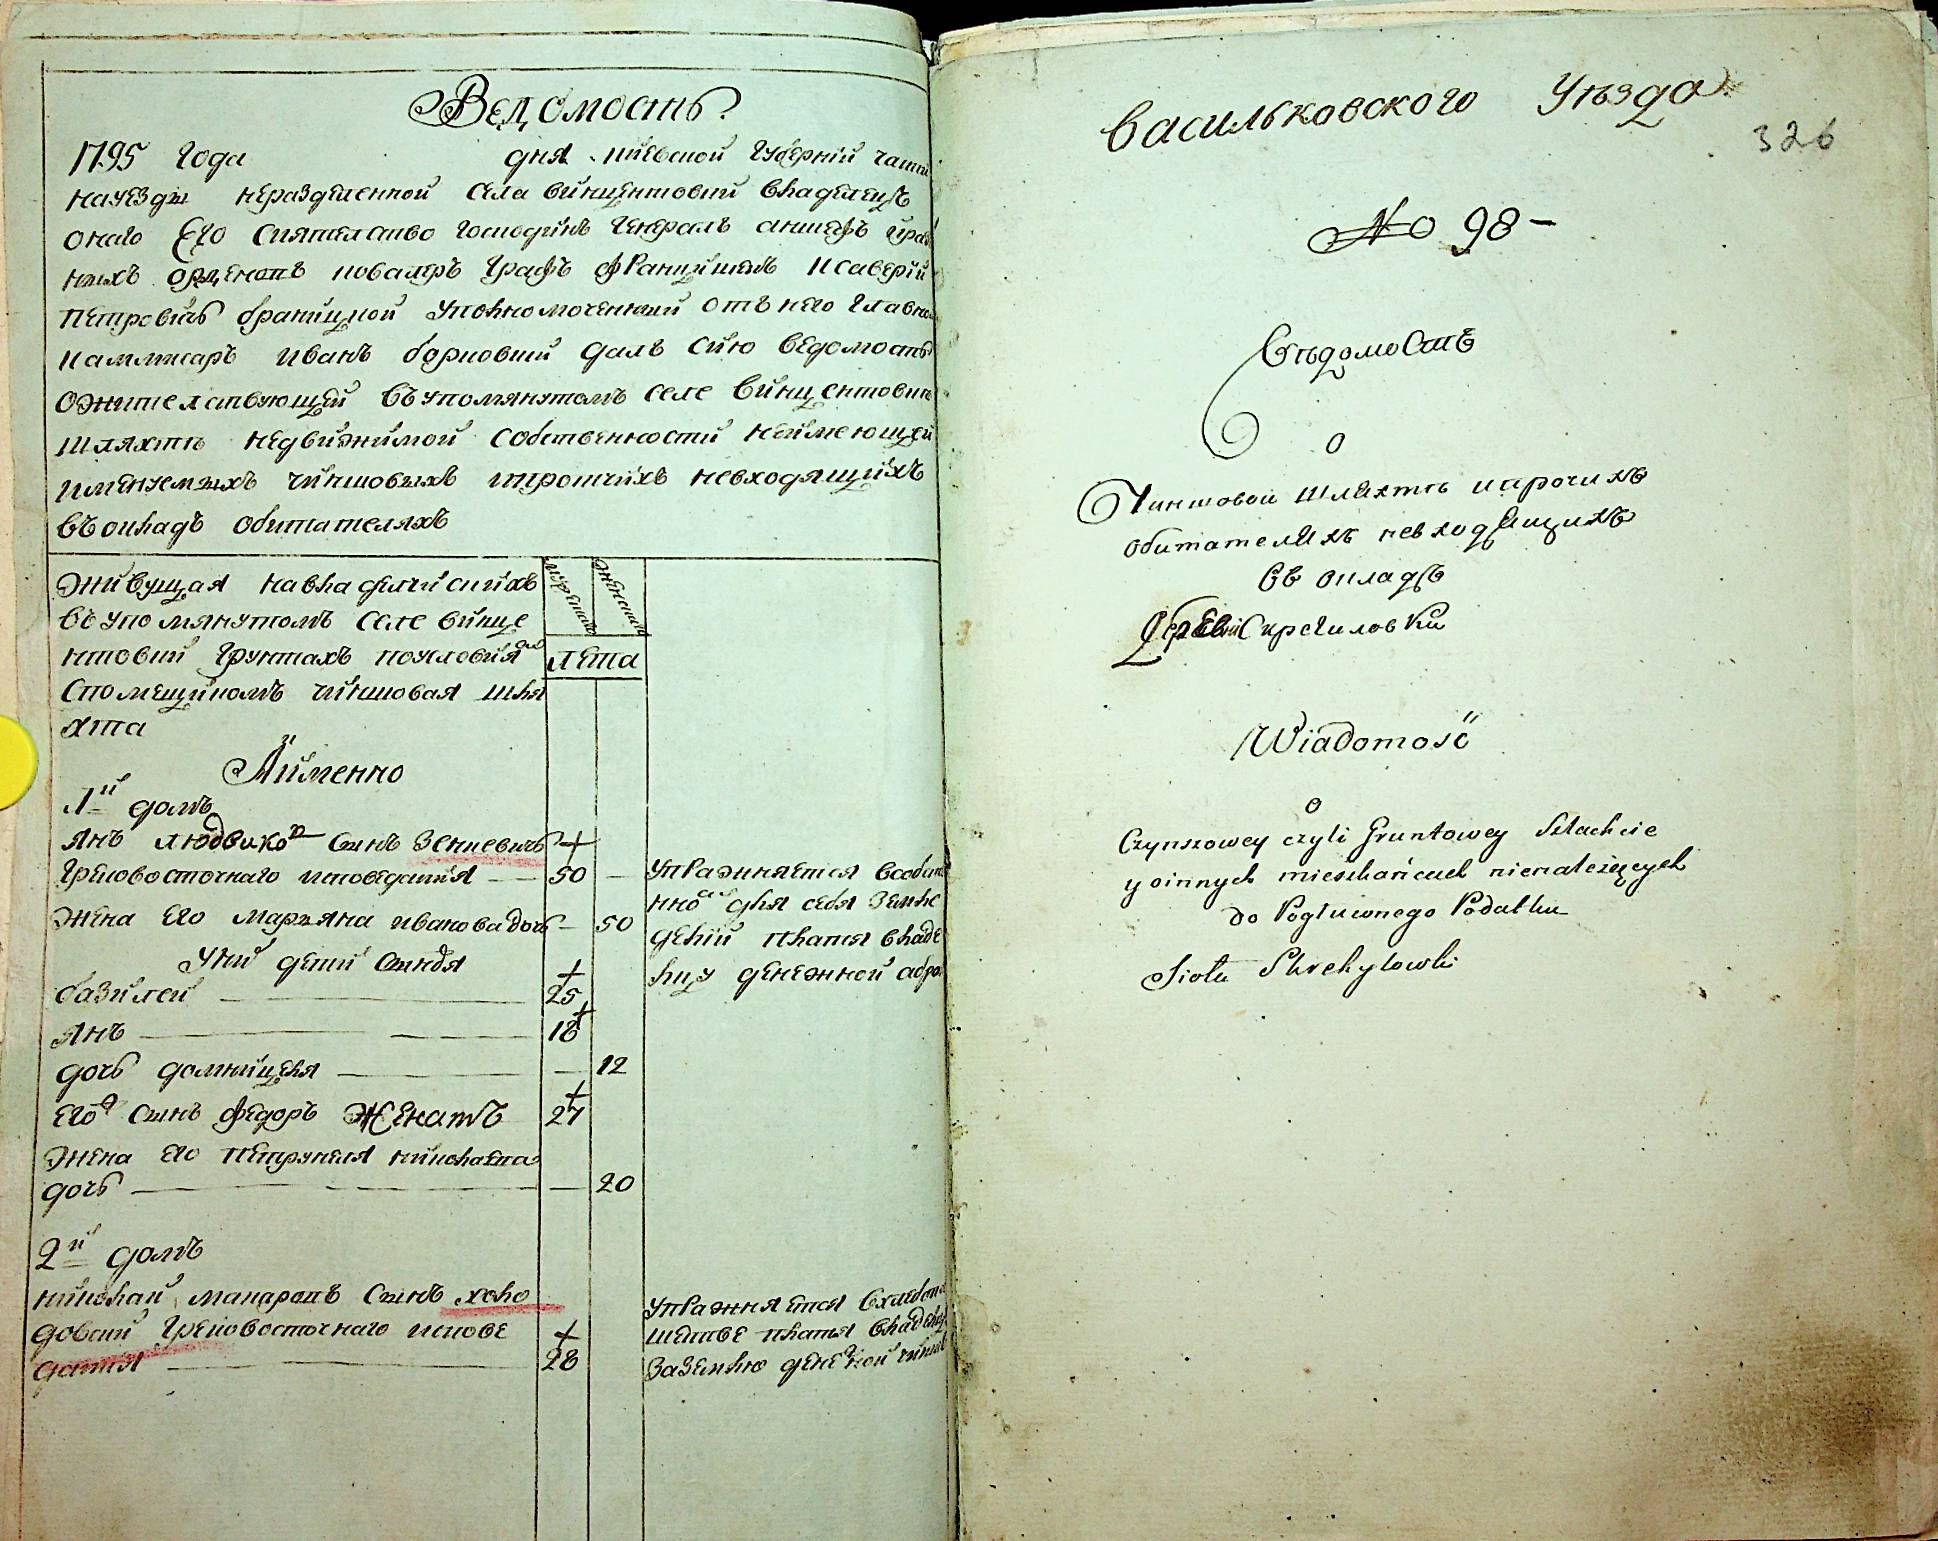 Ведомость
1795 года дня Киевской Губернїи части
науезды неразделенной села винцентовки владелецъ
онаго Его Сиятелство господинъ Генералъ аншефъ
ныхъ орденовъ ковалеръ Графъ Францишекъ Ксаверїй
Петровичь браницкой уполномоченный отъ него главной
каммисаръ иванъ борковский далъ сию ведомость
ожителствующей въупомянутомъ селе винцентовки
шляхтѣ недвижимой собственности неимеющей
именуемыхъ чиншовыхъ ипротчихъ невходящихъ
въокладъ обитателяхъ
живущая навладелчиснихъ
въупомянутомъ селе винце
нтовки грунтахъ поусловия
спомещикомъ чиншовая шля
хта
мужеска
женска
лета
Аименно
1й домъ
Янъ людвиковъ сынъ Зенкевичь +
Грековосточнаго исповедания — 50 — упражняется вособен
жена его марьяна иванова дочь — 50
нной для себя земле
делии платя владе
лцу денежной оброк
у них дети сыновя
базилей — 25 +
Янъ — 18 +
дочь домицеля — 12
его сынъ федоръ женатъ 27 +
жена его петрунеля николаева
дочь — 20
2й домъ
николай макаровъ сынъ холо
довский Грековосточнаго испове
дания — 28 +
упражняется вхлебопа
шестве платя владелц
заземлю денежной чинш
Васильковского Уѣзда
326
No 98 —
Вѣдомость
о
Чиншовой шляхтѣ ипрочихъ
обитателяхъ невходящихъ
въ окладъ
деревни Скрегиловки
Wiadomość
o
Czynszowey czyli Gruntowey Szlachcie
y oinnych mieszkańcach nienależących
do Pogłuwnego Podatku
Sioła Skrehylowki